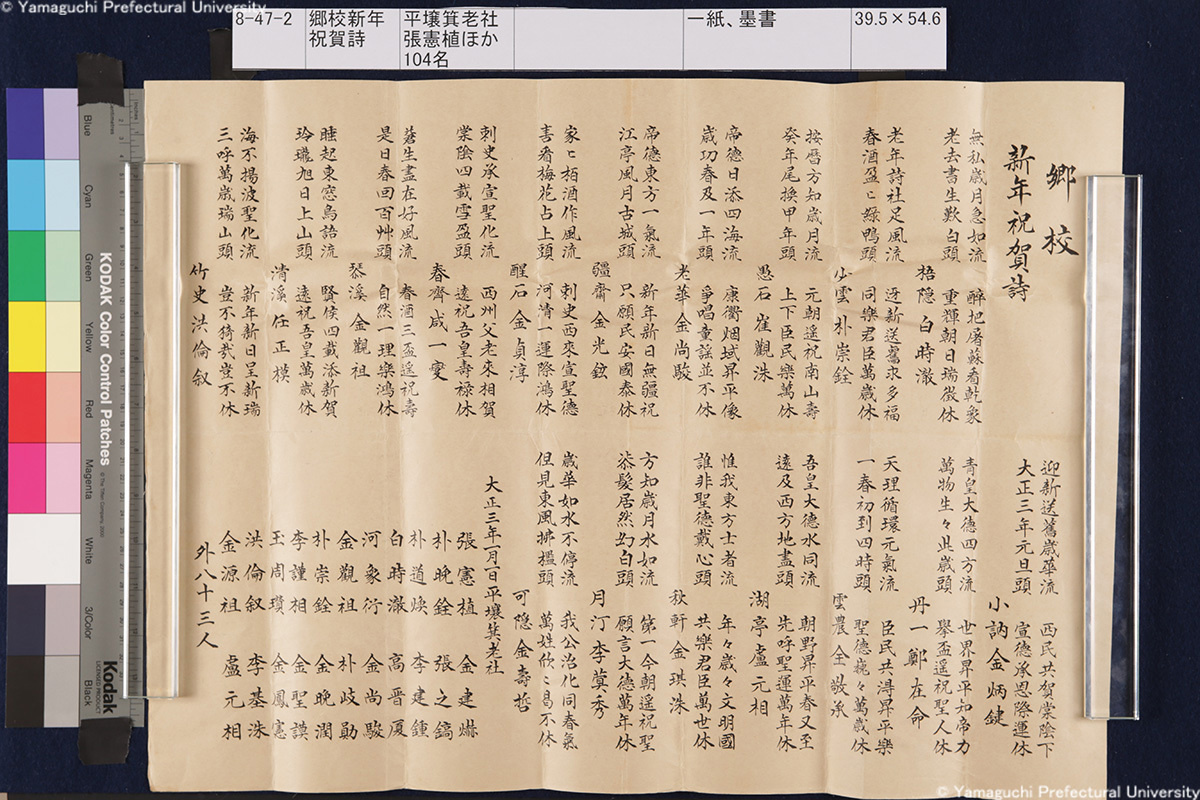 © Yamaguchi Prefectural University
8-47-2
郷校新年
祝賀詩
平壌箕老社
張憲植ほか
104名
一紙、墨書
39.5×54.6
郷校
新年祝賀詩
無私歳月急如流 醉把屠蘇看乾象
老去書生歎白頭 重輝朝日瑞徴休
梧隠 白時澈
老年詩社足風流 迓新送舊求多福
春酒盈〻緑鴨頭 同樂君臣萬歳休
小雲 朴崇銓
按暦方知歳月流 元朝遥祝南山壽
癸年尾換甲年頭 上下臣民樂萬休
愚石 崔觀洙
帝徳日添四海流 康衢烟域昇平像
歳功春及一年頭 爭唱童謡並不休
老華 金尚駿
帝徳東方一氣流 新年新日無疆祝
江亭風月古城頭 只願民安國泰休
疆齋 金光鉉
家〻栢酒作風流 刺史西來宣聖徳
喜看梅花占上頭 河清一運際鴻休
醒石 金貞淳
刺史承宣聖化流 西州父老來相賀
棠陰四載雪盈頭 遠祝吾皇壽禄休
春齊 咸一
蒼生盡在好風流 春酒三盃遥祝壽
是日春回百艸頭 自然一理樂鴻休
溪 金觀祖
睡起東窓鳥語流 賢侯四載添新賀
玲瓏旭日上山頭 遠祝吾皇萬歳休
清溪 任正模
海不揚波聖化流 新年新日呈新瑞
三呼萬歳瑞山頭 豈不猗哉豈不休
竹史 洪倫叙
迎新送舊歳華流 西民共賀棠陰下
大正三年元旦頭 宣徳承恩際運休
小訥 金炳鍵
青皇大徳四方流 世界昇平知帝力
萬物生々此歳頭 擧盃遥祝聖人休
丹一 鄭在命
天理循環元氣流 臣民共淂昇平樂
一春初到四時頭 聖徳巍々萬歳休
雲農 全敬承
吾皇大徳水同流 朝野昇平春又至
遠及西方地盡頭 先呼聖運萬年休
湖亭 盧元相
惟我東方士者流 年々歳々文明國
誰非聖徳戴心頭 共樂君臣萬世休
秋軒 金珙洙
方知歳月水如流 第一今朝遥祝聖
添髮居然幻白頭 願言大徳萬年休
月汀 李蓂秀
歳華如水不停流 我公治化同春氣
但見東風拂檻頭 萬姓欣〻曷不休
可隠 金壽哲
大正三年一月一日平壌箕老社
張憲植 金建
朴晩銓 張之鎬
朴道煥 李建鍾
白時澈 高晋厦
河象衍 金尚駿
金觀祖 朴岐勛
朴崇銓 金晩潤
李謹相 金聖譚
玉周瓚 金鳳憲
洪倫叙 李基洙
金源祖 盧元相
外八十三人
KODAK Color Control Patches
Blue
Cyan
Green
Yellow
Red
Magenta
White
3/Color
Black
Kodak
© Yamaguchi Prefectural University